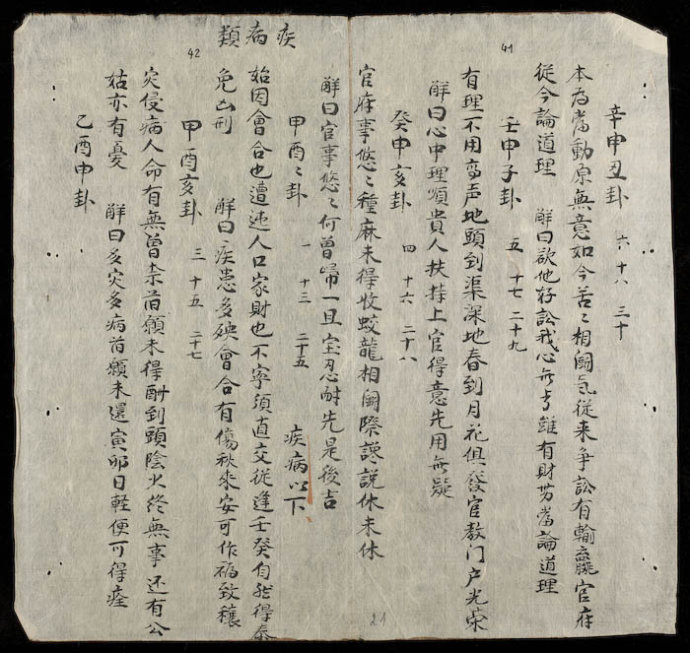 辛申丑卦　六　十八　三十
本為當動原無意如今苦〻相鬪氣從来爭訟有輸贏官府
從今論道理　解曰欲他好訟我心無亏雖有財勞當論道理
41
壬申子卦　五　十七　二十九
有理不用高声地頭到渠深地春到月花俱發官教门户光荣
解曰心中理順貴人扶持上官得意先用無疑
癸申亥卦　四　十六　二十八
官府事悠〻種麻未得收蛟龍相鬪際謀説休未休
解曰官事悠〻何曾歸一且宜忍耐先是後吉
疾病類
甲酉〻卦　一　十三　二十五　疾病以下
始因會合也遭迍人口家財也不寧須直交従逢壬癸自然得泰
免凶刑　解曰疾患多殃會合有傷秋来安可作福致穰
42
甲酉亥卦　三　十五　二十七
灾侵病人命有無曽柰苗願未得酧到頭陰火终無事还有公
姑亦有憂　解曰多灾多病苗願未還寅卯日軽便可得痊
乙酉申卦
21